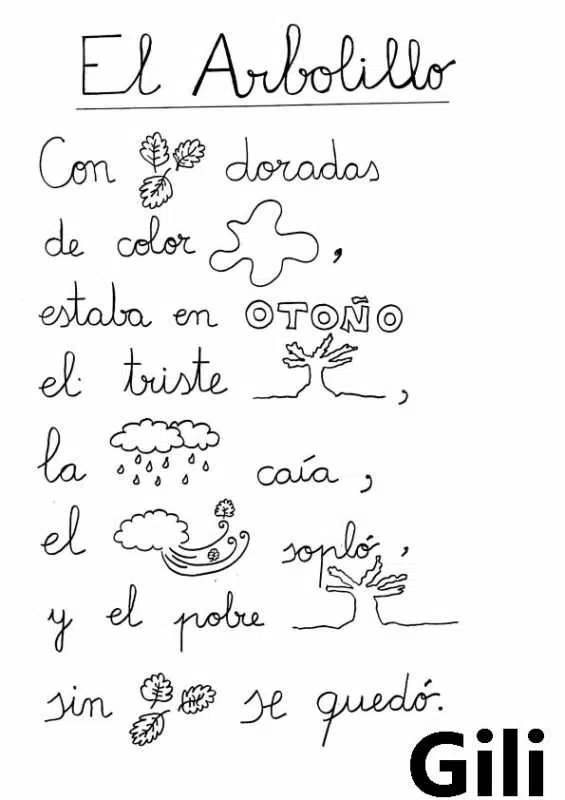 El Arbolillo
Con doradas
de color ,
estaba en OTOÑO
el triste ,
la caía ,
el sopló ,
y el pobre
sin se quedó.
Gili